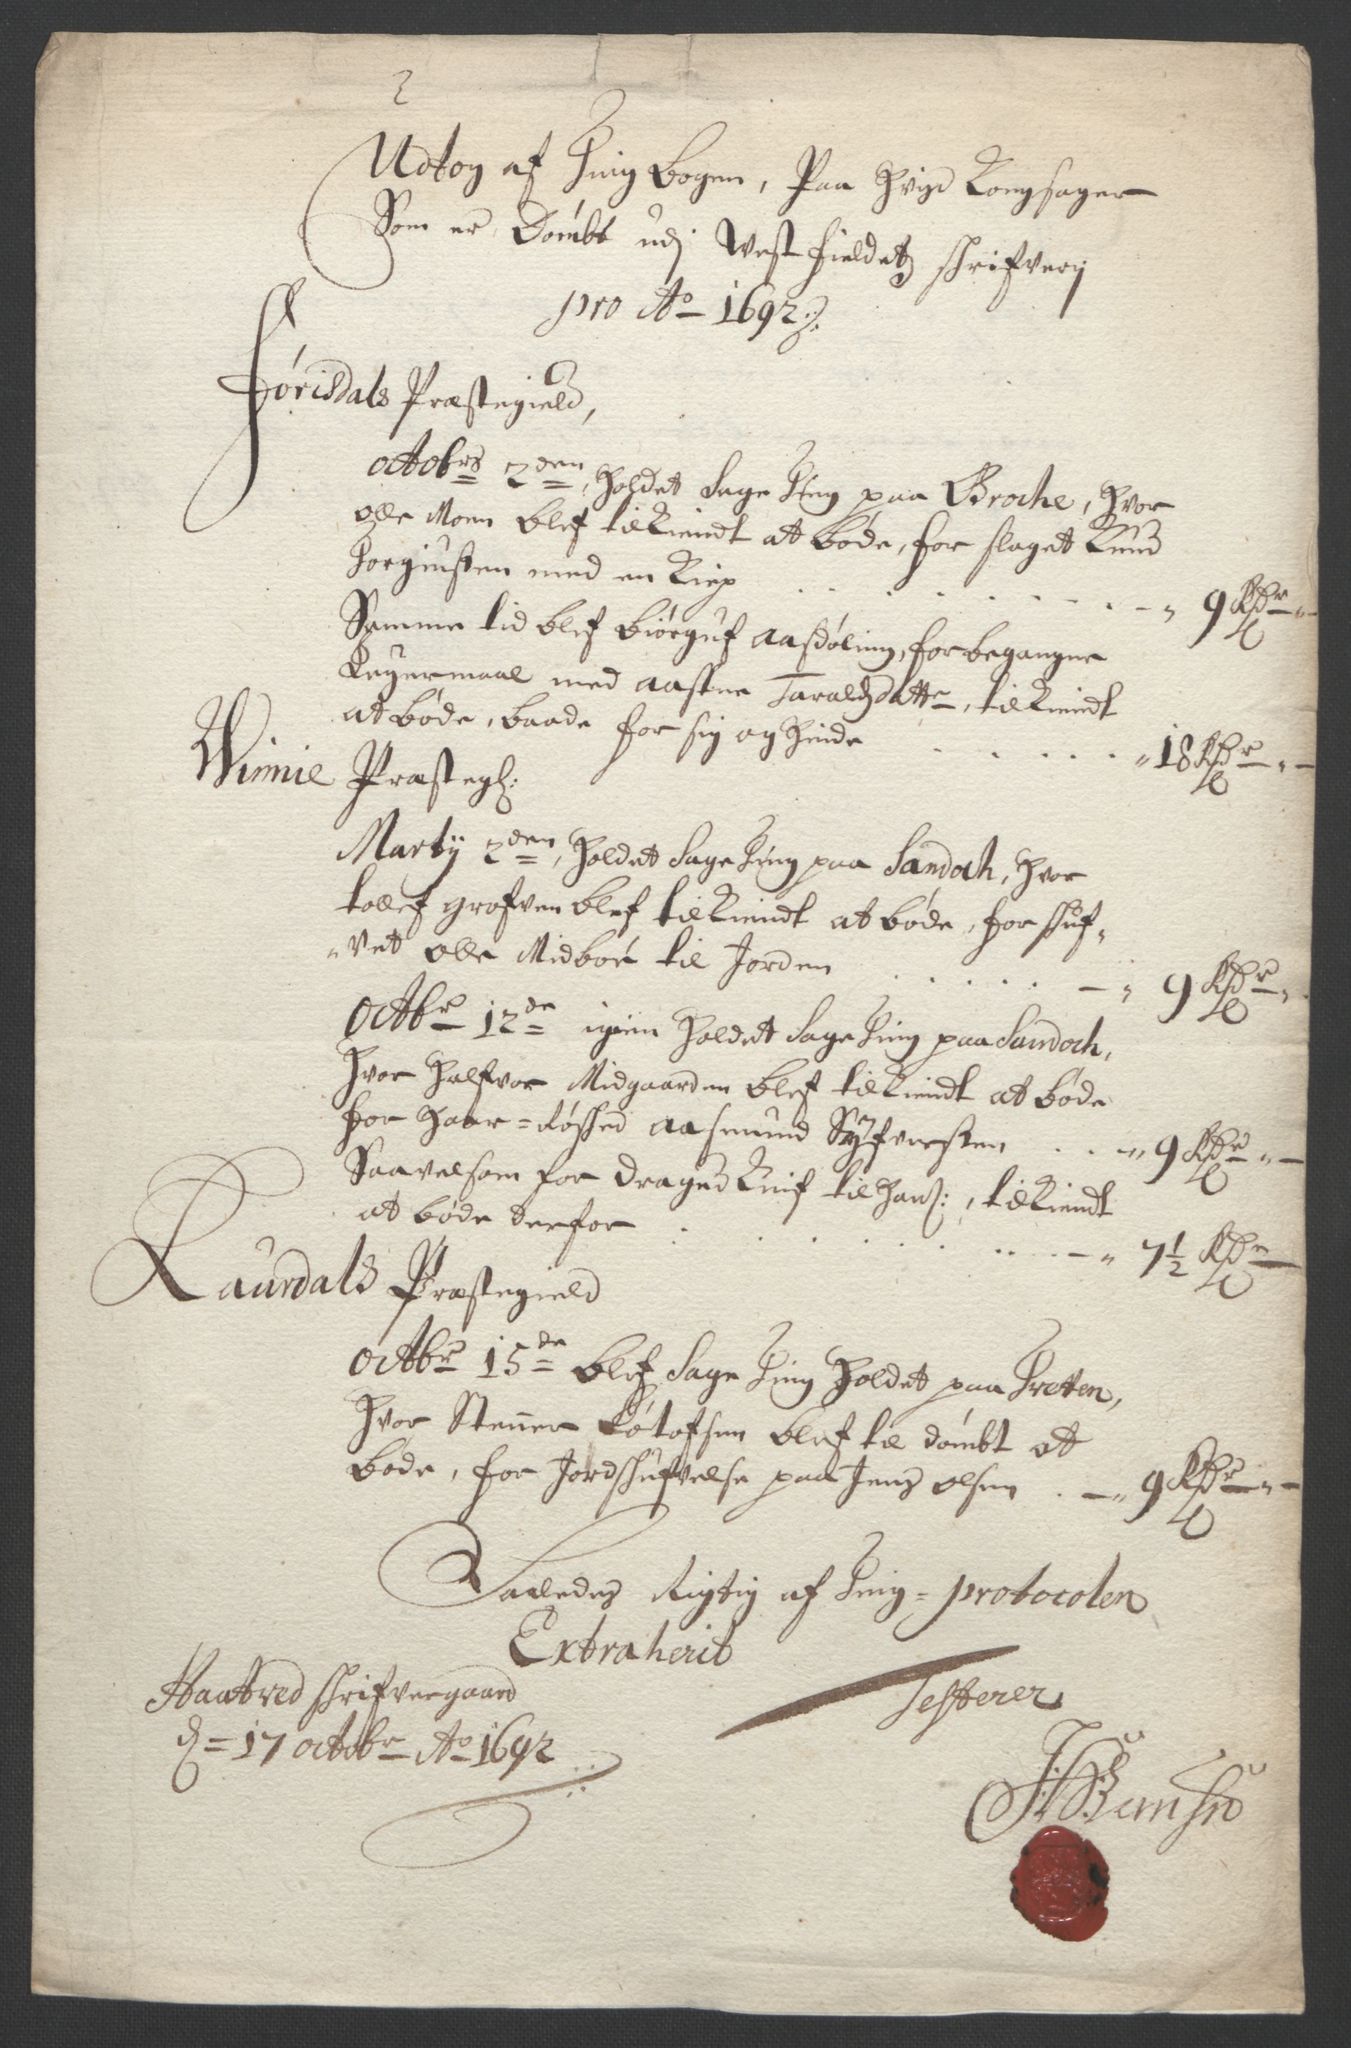 2
Udtog af Ting Bogen, Paa Hvis Kongsager
Som er Dømbt udj West Fieldetz Schrifverij
pro Ao 1692
Førisdals Præstegield,
octobrs 2den, Holdet Sage Ting paa Broche, Hvor
olle Moen blef tilkiendt at bøde, for slaget Knud
Torgiusten med en Kiep . . . 9 Rdr
Samme tid blef Biørguf Aasdøling, for begangne
Leyermaal med Aasne Taraldzdatter, tilkiendt
at bøde, baade for sig og Hinde . . . 18 Rdr
Winnie Præstegl:
Martij 2den, Holdet Sage Ting paa Sandoch, Hvor
tollef grofven blef tilkiendt at bøde, for skuf-
vet olle Midboe til Jorden . . . 9 Rdr
Octbr 12de igien Holdet Sage Ting paa Sandoch,
Hvor Halfvor Midgaarden blef tilkiendt at bøde
for Haar-Røched Aasmund Syfversen . . . 9 Rdr
Saavelsom for draged Knif til Hans:, tilkiendt
at bøde derfor . . . 7½ Rdr
Raurdals Præstegield
octbr 15de blef Sage Ting Holdet paa Treten,
Hvor Stener Køtolfsen blef til dømbt at
bøde, for Jordskufvelse paa Jens olsen . . . 9 Rdr
Saaledes Rigtig af Ting-protocolen
Extraherit
Haatved Schrifvergaard
d= 17 octobr Ao 1692
Testerer